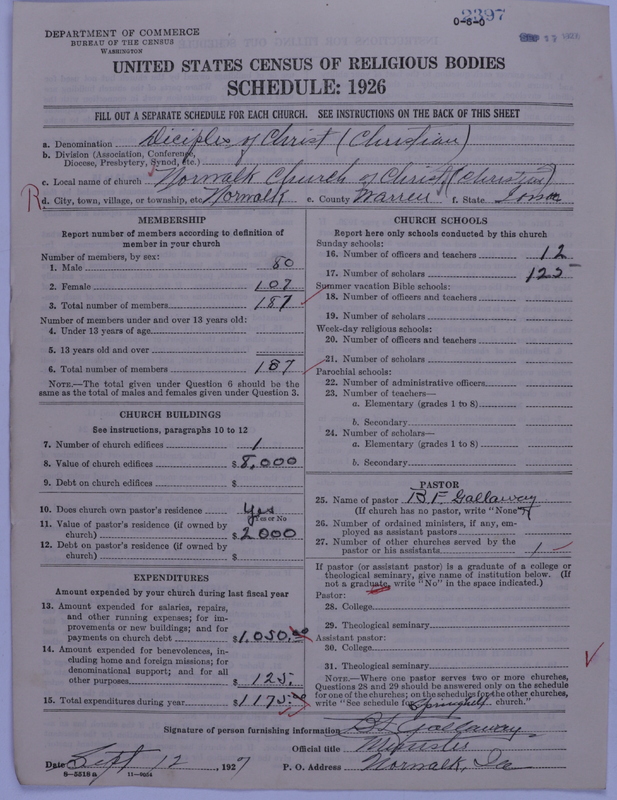 2397
0-6-0
DEPARTMENT OF COMMERCE
BUREAU OF THE CENSUS
WASHINGTON
UNITED STATES CENSUS OF RELIGIOUS BODIES
SCHEDULE: 1926
FILL OUT A SEPARATE SCHEDULE FOR EACH CHURCH. SEE INSTRUCTIONS ON THE BACK OF THIS SHEET
a. Denomination Diciples of Christ (Christian)
b. Division (Association, Conference, Diocese, Presbytery, Synod, etc.)
c. Local name of church Norwalk Church of Christ (Christian)
R d. City, town, village, or township, etc. Norwalk e. County Warren f. State Iowa
MEMBERSHIP
Report number of members according to definition of
member in your church
Number of members, by sex:
1. Male 80
2. Female 107
3. Total number of members 187
Number of members under and over 13 years old:
4. Under 13 years of age
5. 13 years old and over
6. Total number of members 187
NOTE.—The total given under Question 6 should be
same as the total of males and females given under Question 3.
CHURCH BUILDINGS
See instructions, paragraphs 10 to 12
7. Number of church edifices 1
8. Value of church edifices $8,000
9. Debt on church edifices $
10. Does church own pastor's residence Yes
Yes or No
11. Value of pastor's residence (if owned by
church) $2000
12. Debt on pastor's residence (if owned by
church) $
EXPENDITURES
Amount expended by your church during last fiscal year
13. Amount expended for salaries, repairs,
and other running expenses; for im-
provements or new buildings; and for
payments on church debt $1,050.00
14. Amount expended for benevolences, in-
cluding home and foreign missions; for
denominational support; and for all
other purposes $125.
15. Total expenditures during year $1175.00
CHURCH SCHOOLS
Report here only schools conducted by this church
Sunday schools:
16. Number of officers and teachers 12
17. Number of scholars 125
Summer vacation Bible schools:
18. Number of officers and teachers
19. Number of scholars
Week-day religious schools:
20. Number of officers and teachers
21. Number of scholars
Parochial schools:
22. Number of administrative officers
23. Number of teachers—
a. Elementary (grades 1 to 8)
b. Secondary
24. Number of scholars—
a. Elementary (grades 1 to 8)
b. Secondary
PASTOR
25. Name of pastor B.F. Gallaway
(If church has no pastor, write "None")
26. Number of ordained ministers, if any, em-
ployed as assistant pastors
27. Number of other churches served by the
pastor or his assistants 1
If pastor (or assistant pastor) is a graduate of a college or
theological seminary, give name of institution below. (If
not a graduate, write "No" in the space indicated.)
Pastor:
28. College
29. Theological seminary
Assistant pastor:
30. College
31. Theological seminary
NOTE.—Where one pastor serves two or more churches,
Questions 28 and 29 should be answered only on the schedule
for one of the churches; on the schedules for the other churches,
write "See schedule for church."
Signature of person furnishing information B F Gallaway
Official title Minister
Date Sept 12, 1927 P. O. Address Norwalk, Ia
8-5518a 11-9054